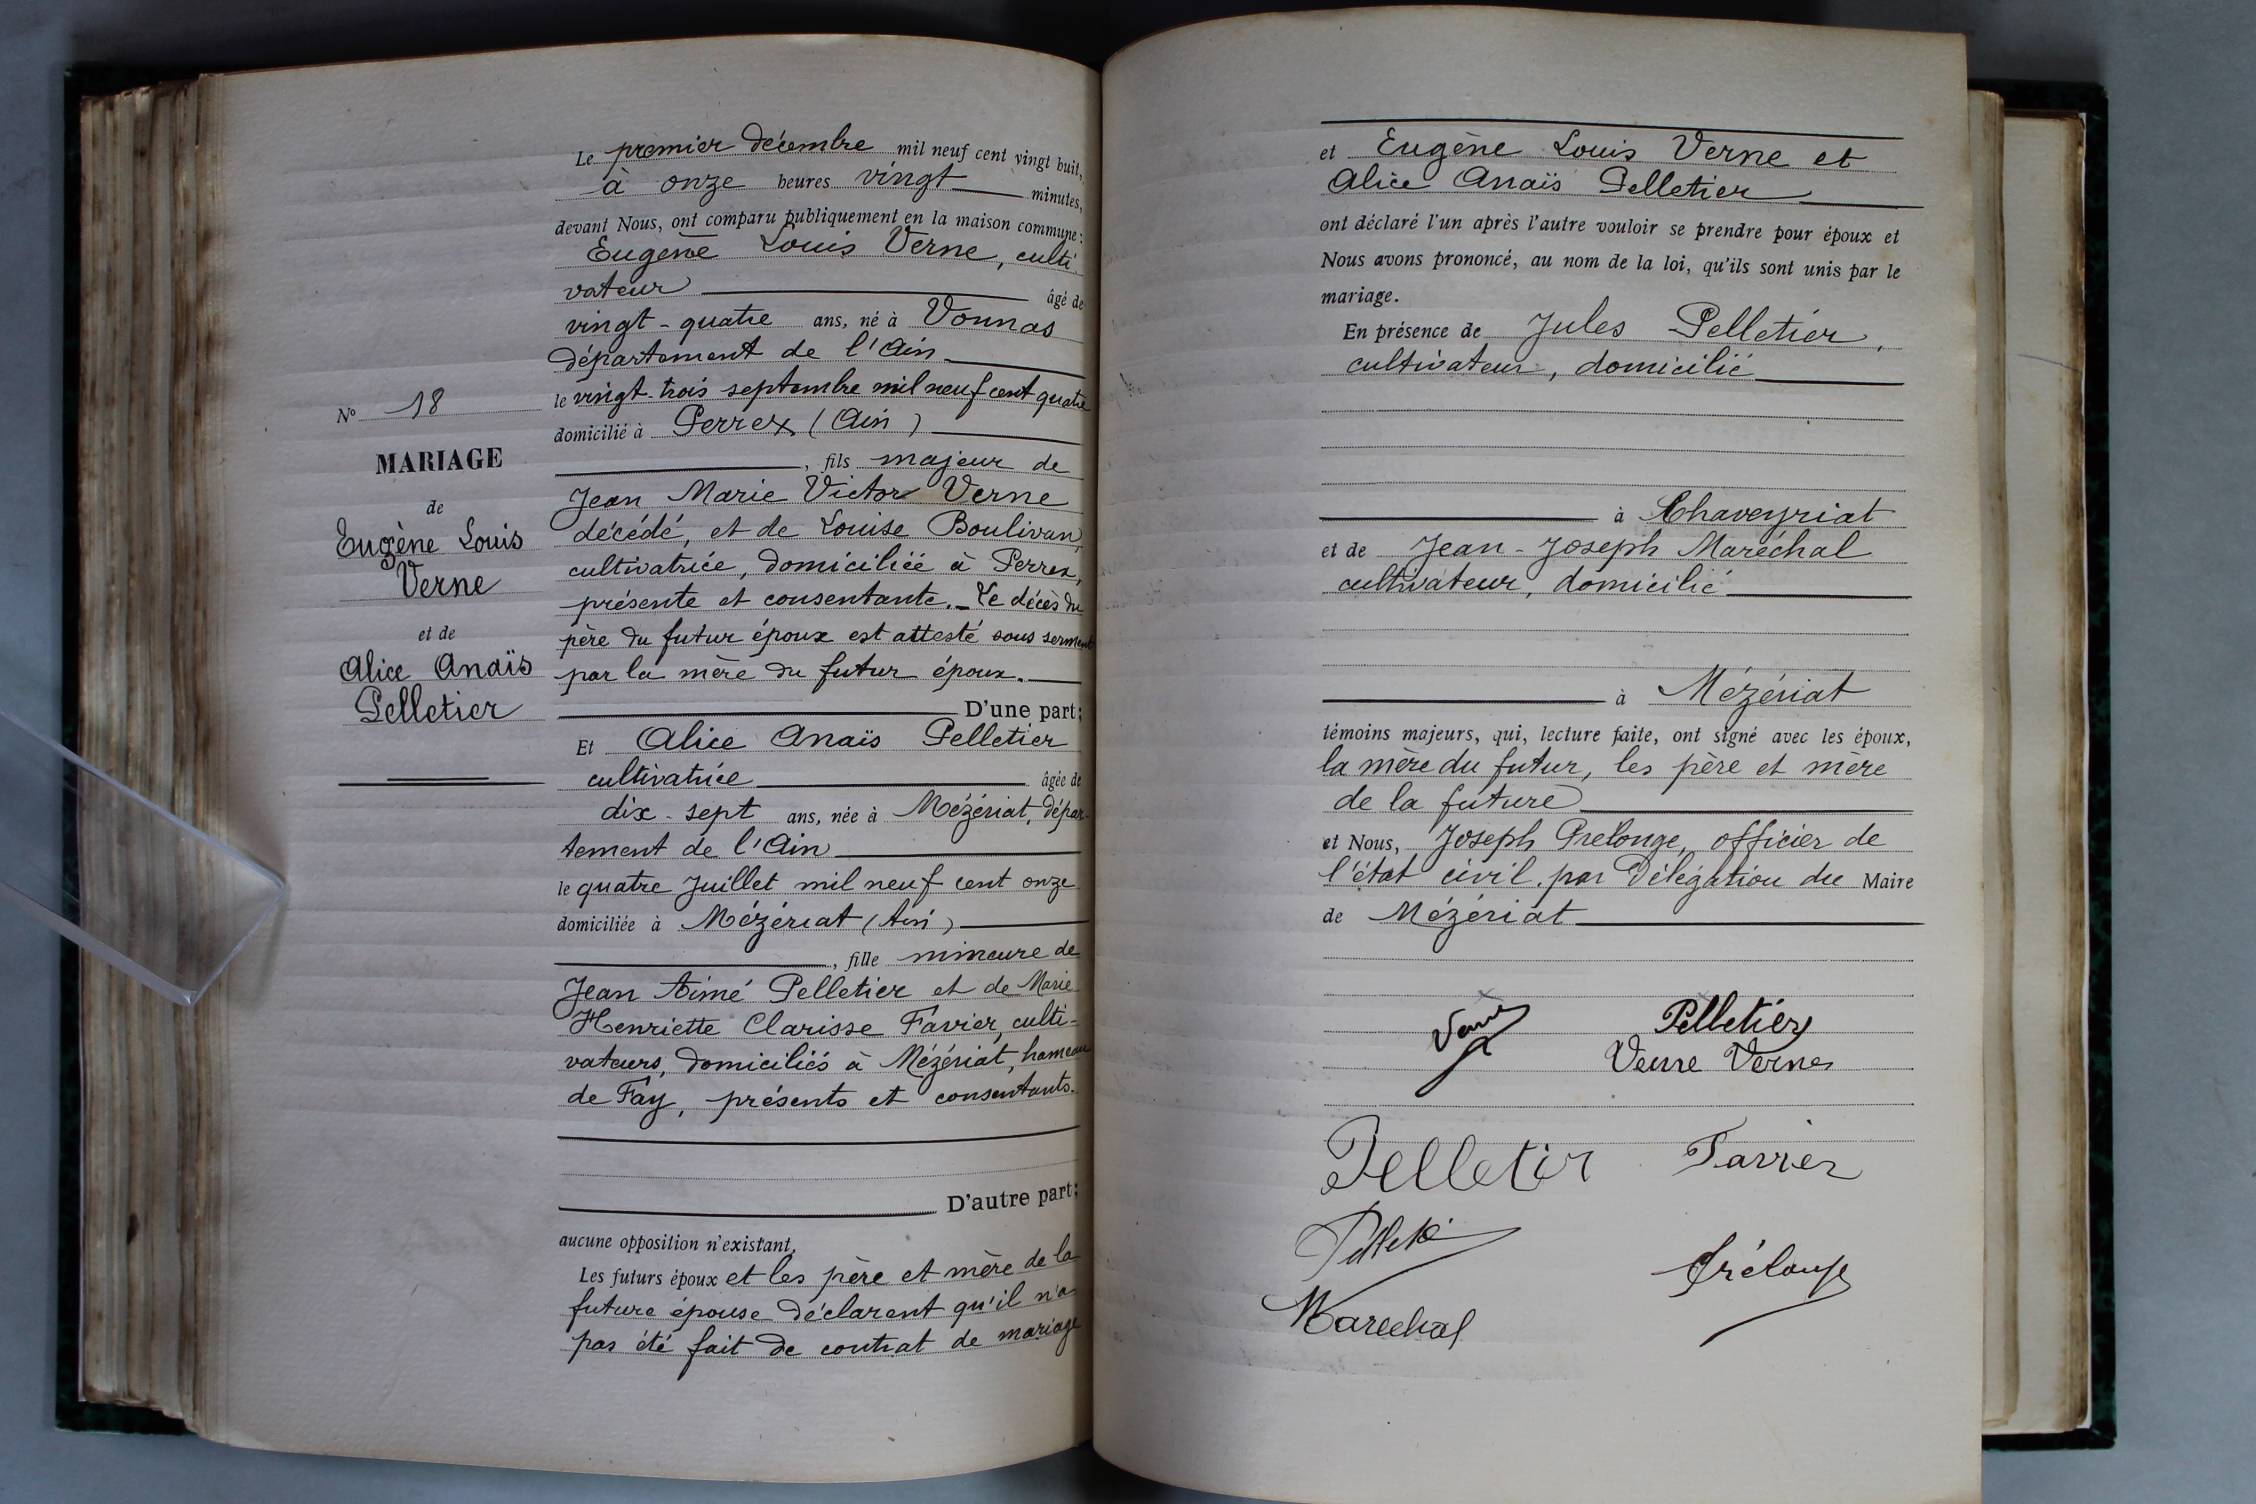 Le premier décembre mil neuf cent vingt huit,
à onze heures vingt minutes,
devant Nous, ont comparu publiquement en la maison commune :
Eugène Louis Verne, culti
vateur âgé de
vingt-quatre ans, né à Vonnas
département de l'Ain
le vingt-trois septembre mil neuf cent quatre
domicilié à Perrex (Ain)
, fils majeur de
Jean Marie Victor Verne
décédé, et de Louise Boulivan,
cultivatrice, domiciliée à Perrex,
présente et consentante. _ Le décès du
père du futur époux est attesté sous serment
par la mère du futur époux.
D'une part ;
Et Alice Anaïs Pelletier
cultivatrice âgée de
dix-sept ans, née à Mézériat, dépar-
tement de l'Ain
le quatre Juillet mil neuf cent onze
domiciliée à Mézériat (Ain)
, fille mineure de
Jean Aimé Pelletier et de Marie
Henriette Clarisse Favier, culti-
vateurs, domiciliés à Mézériat, hameau
de Fay, présents et consentants.
D'autre part ;
aucune opposition n'existant,
Les futurs époux et les père et mère de la
future épouse déclarent qu'il n'a
pas été fait de contrat de mariage
N° 18
MARIAGE
de
Eugène Louis
Verne
et de
Alice Anaïs
Pelletier
et Eugène Louis Verne et
Alice Anaïs Pelletier
ont déclaré l'un après l'autre vouloir se prendre pour époux et
Nous avons prononcé, au nom de la loi, qu'ils sont unis par le
mariage.
En présence de Jules Pelletier,
cultivateur, domicilié
à Chaveyriat
et de Jean-Joseph Maréchal
cultivateur, domicilié
à Mézériat
témoins majeurs, qui, lecture faite, ont signé avec les époux,
la mère du futur, les père et mère
de la future
et Nous, Joseph Prelonge, officier de
l'état civil par délégation du Maire
de Mézériat
Verne Pelletier
Veuve Verne
Pelletir Favier
Maréchal